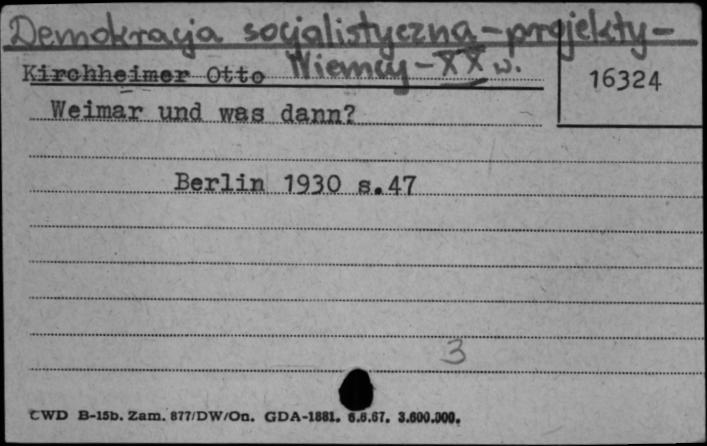 Demokracja socjalistyczna - projekty -
Niemcy - XX w.
Kirchheimer Otto
16324
Weimar und was dann?
Berlin 1930 s.47
3
CWD B-15b. Zam. 877/DW/On. GDA-1881. 6.6.67. 3.600.000.